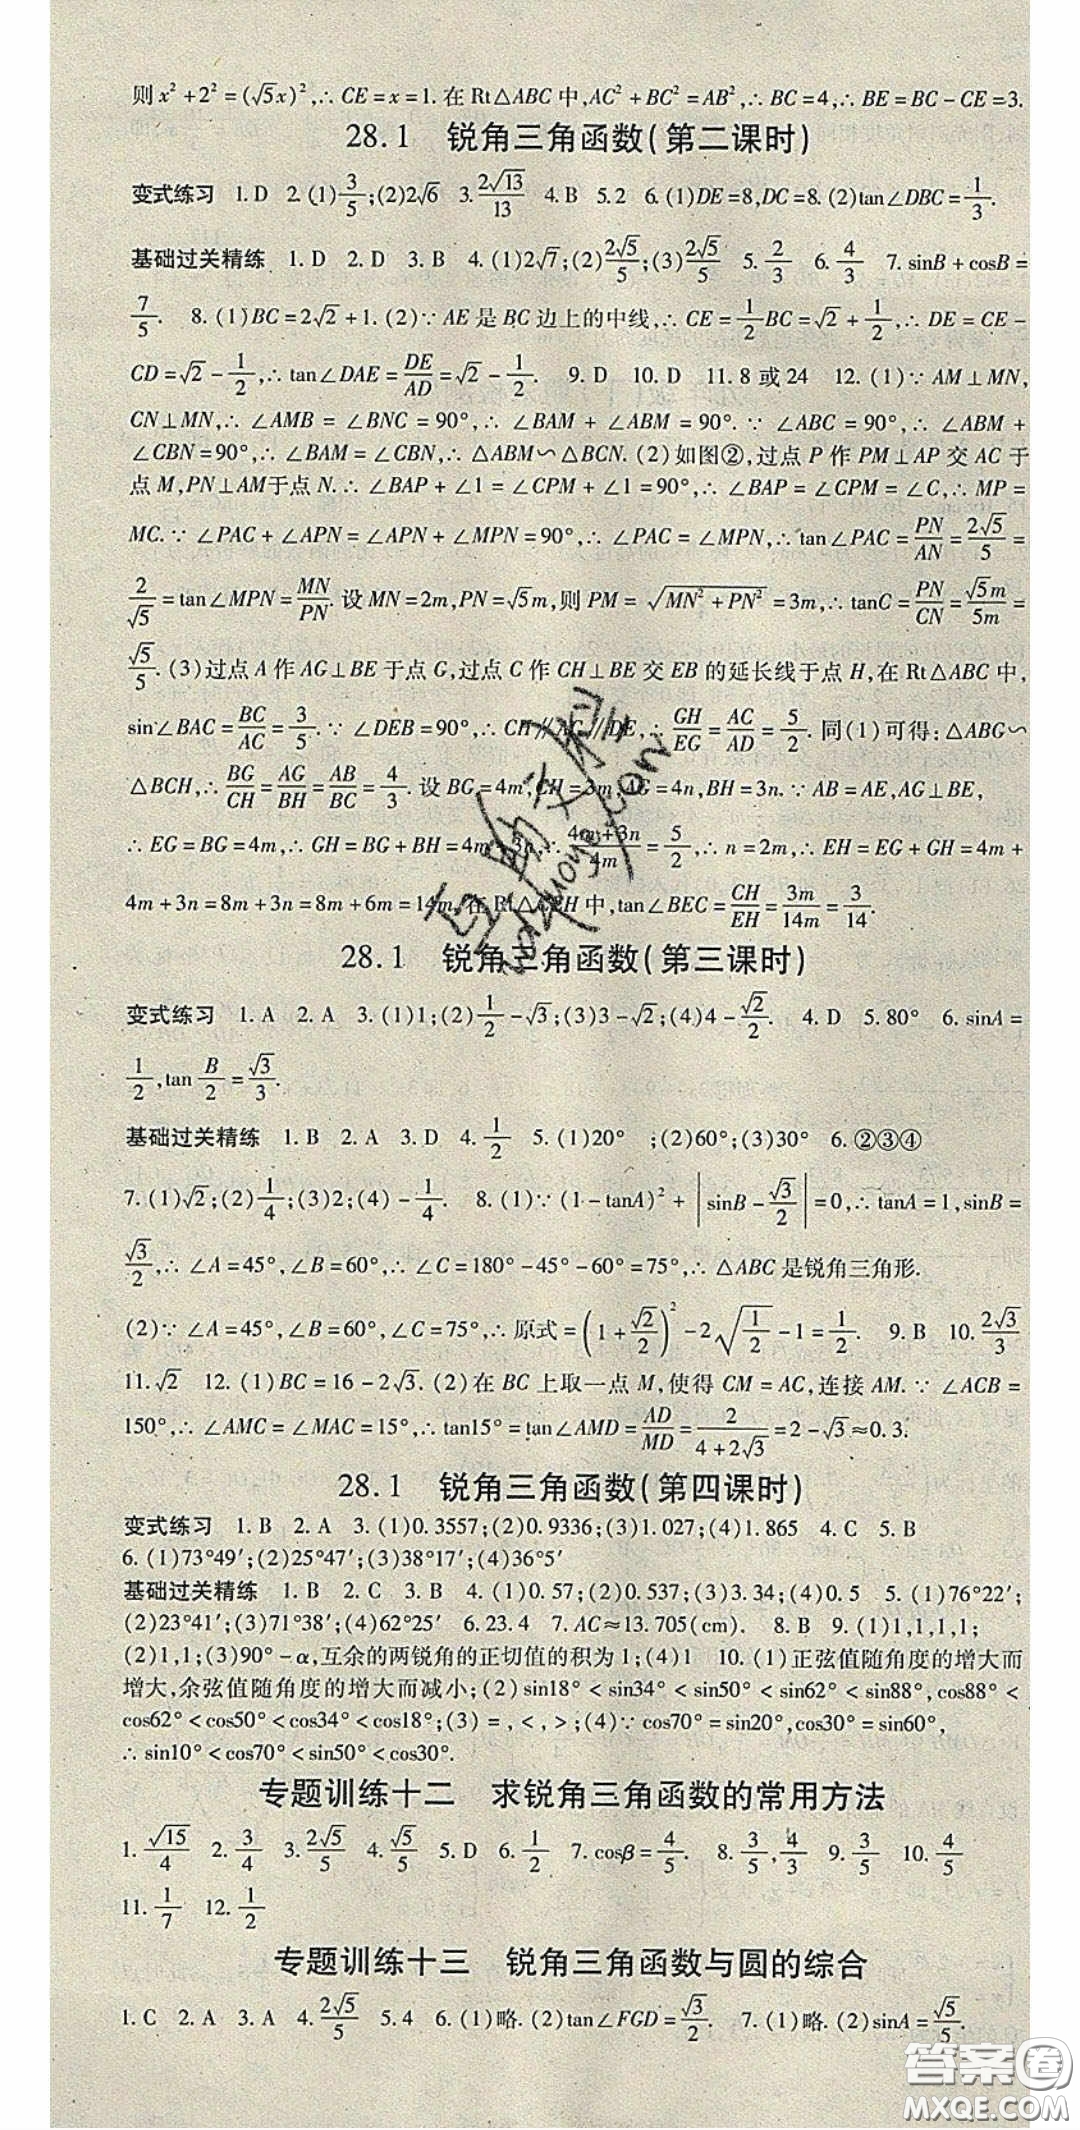 则x²+2²=(√5x)²,∴CE=x=1.在Rt△ABC中,AC²+BC²=AB²,∴BC=4,∴BE=BC-CE=3.
28.1 锐角三角函数(第二课时)
变式练习 1.D 2.(1)3/5;(2)2√6 3.2√13/13 4.B 5.2 6.(1)DE=8,DC=8.(2)tan∠DBC=1/3.
基础过关精练 1.D 2.D 3.B 4.(1)2√7;(2)2√5/5;(3)2√5/5 5.2/3 6.4/3 7.sinB+cosB=
7/5. 8.(1)BC=2√2+1.(2)∵AE是BC边上的中线,∴CE=1/2BC=√2+1/2,∴DE=CE-
CD=√2-1/2,∴tan∠DAE=DE/AD=√2-1/2. 9.D 10.D 11.8或24 12.(1)∵AM⊥MN,
CN⊥MN,∴∠AMB=∠BNC=90°,∴∠BAM+∠ABM=90°.∵∠ABC=90°,∴∠ABM+
∠CBN=90°,∴∠BAM=∠CBN,∴△ABM∽△BCN.(2)如图②,过点P作PM⊥AP交AC于
点M,PN⊥AM于点N.∴∠BAP+∠1=∠CPM+∠1=90°,∴∠BAP=∠CPM=∠C,∴MP=
MC.∵∠PAC+∠APN=∠APN+∠MPN=90°,∴∠PAC=∠MPN,∴tan∠PAC=PN/AN=2√5/5=
2/√5=tan∠MPN=MN/PN.设MN=2m,PN=√5m,则PM=√(MN²+PN²)=3m,∴tanC=PN/CN=√5m/5m=
√5/5.(3)过点A作AG⊥BE于点G,过点C作CH⊥BE交EB的延长线于点H,在Rt△ABC中,
sin∠BAC=BC/AC=3/5.∵∠DEB=90°,∴CH∥AG∥DE,∴GH/EG=AC/AD=5/2.同(1)可得:△ABG∽
△BCH,∴BG/CH=AG/BH=AB/BC=4/3.设BG=4m,CH=3m,AG=4n,BH=3n.∵AB=AE,AG⊥BE,
∴EG=BG=4m,∴GH=BG+BH=4m+3n,∴(4m+3n)/4m=5/2,∴n=2m,∴EH=EG+GH=4m+
4m+3n=8m+3n=8m+6m=14m,在Rt△CEH中,tan∠BEC=CH/EH=3m/14m=3/14.
28.1 锐角三角函数(第三课时)
变式练习 1.A 2.A 3.(1)1;(2)1/2-√3;(3)3-√2;(4)4-√2/2. 4.D 5.80° 6.sinA=
1/2,tan B/2=√3/3.
基础过关精练 1.B 2.A 3.D 4.1/2 5.(1)20° ;(2)60°;(3)30° 6.②③④
7.(1)√2;(2)1/4;(3)2;(4)-1/4. 8.(1)∵(1-tanA)²+|sinB-√3/2|=0,∴tanA=1,sinB=
√3/2,∴∠A=45°,∠B=60°,∴∠C=180°-45°-60°=75°,∴△ABC是锐角三角形.
(2)∵∠A=45°,∠B=60°,∠C=75°,∴原式=(1+√2/2)²-2√(1/2)-1=1/2. 9.B 10.2√3/3
11.√2 12.(1)BC=16-2√3.(2)在BC上取一点M,使得CM=AC,连接AM.∵∠ACB=
150°,∴∠AMC=∠MAC=15°,∴tan15°=tan∠AMD=AD/MD=2/(4+2√3)=2-√3≈0.3.
28.1 锐角三角函数(第四课时)
变式练习 1.B 2.A 3.(1)0.3557;(2)0.9336;(3)1.027;(4)1.865 4.C 5.B
6.(1)73°49′;(2)25°47′;(3)38°17′;(4)36°5′
基础过关精练 1.B 2.C 3.B 4.(1)0.57;(2)0.537;(3)3.34;(4)0.5 5.(1)76°22′;
(2)23°41′;(3)71°38′;(4)62°25′ 6.23.4 7.AC≈13.705(cm). 8.B 9.(1)1,1,1,1;
(2)1,1;(3)90°-α,互余的两锐角的正切值的积为1;(4)1 10.(1)正弦值随角度的增大而
增大,余弦值随角度的增大而减小;(2)sin18°<sin34°<sin50°<sin62°<sin88°,cos88°<
cos62°<cos50°<cos34°<cos18°;(3)=,<,>;(4)∵cos70°=sin20°,cos30°=sin60°,
∴sin10°<cos70°<sin50°<cos30°.
专题训练十二 求锐角三角函数的常用方法
1.√15/4 2.3/4 3.2√5/5 4.√5/5 5.D 6.1/2 7.cosβ=4/5. 8.3/5,4/3 9.3/5 10.4/5
11.1/7 12.1/2
专题训练十三 锐角三角函数与圆的综合
1.C 2.A 3.A 4.2√5/5 5.4 6.(1)略.(2)tan∠FGD=√3/2. 7.(1)略.(2)sinA=√5/5.
答案圈
MXQE.COM